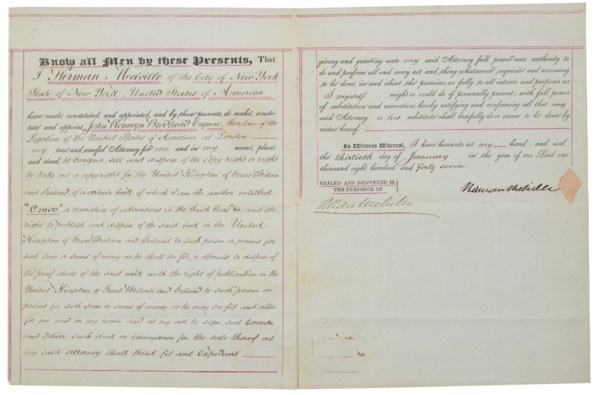 Know all Men by these Presents, That
I Herman Melville of the City of New York
State of New York, United States of America
have made, constituted, and appointed, and by these presents, do make, consti-
tute and appoint John Romeyn Brodhead Esquire, Secretary of the
Legation of the United States of America at London
my true and lawful Attorney for me and in my name, place
and stead, to bargain, sell and dispose of the copy right or right
to take out a copyright for the United Kingdom of Great Britain
and Ireland, of a certain book of which I am the author entitled
"Omoo", a narrative of adventures in the South Seas, and the
right to publish and dispose of the said book in the United
Kingdom of Great Britain and Ireland to such person or persons for
such sum or sums of money as he shall see fit, or otherwise to dispose of
the proof sheets of the said work with the right of publication in the
United Kingdom of Great Britain and Ireland to such person or
persons for such sum or sums of money as he may see fit and also
for me and in my name and as my act to sign, seal Execute
and deliver such deed or conveyance for the sale thereof as
my said Attorney shall think fit and Expedient
giving and granting unto my said Attorney full power and authority to
do and perform all and every act and thing whatsoever requisite and necessary
to be done in and about the premises, as fully to all intents and purposes as
I myself might or could do if personally present, with full power
of substitution and revocation, hereby ratifying and confirming all that my
said Attorney or his substitute shall lawfully do or cause to be done by
virtue hereof.
In Witness Whereof, I have hereunto set my hand and seal
the thirtieth day of January in the year of our Lord one
thousand eight hundred and forty seven
SEALED AND DELIVERED IN
THE PRESENCE OF
Herman Melville
Allan Melville